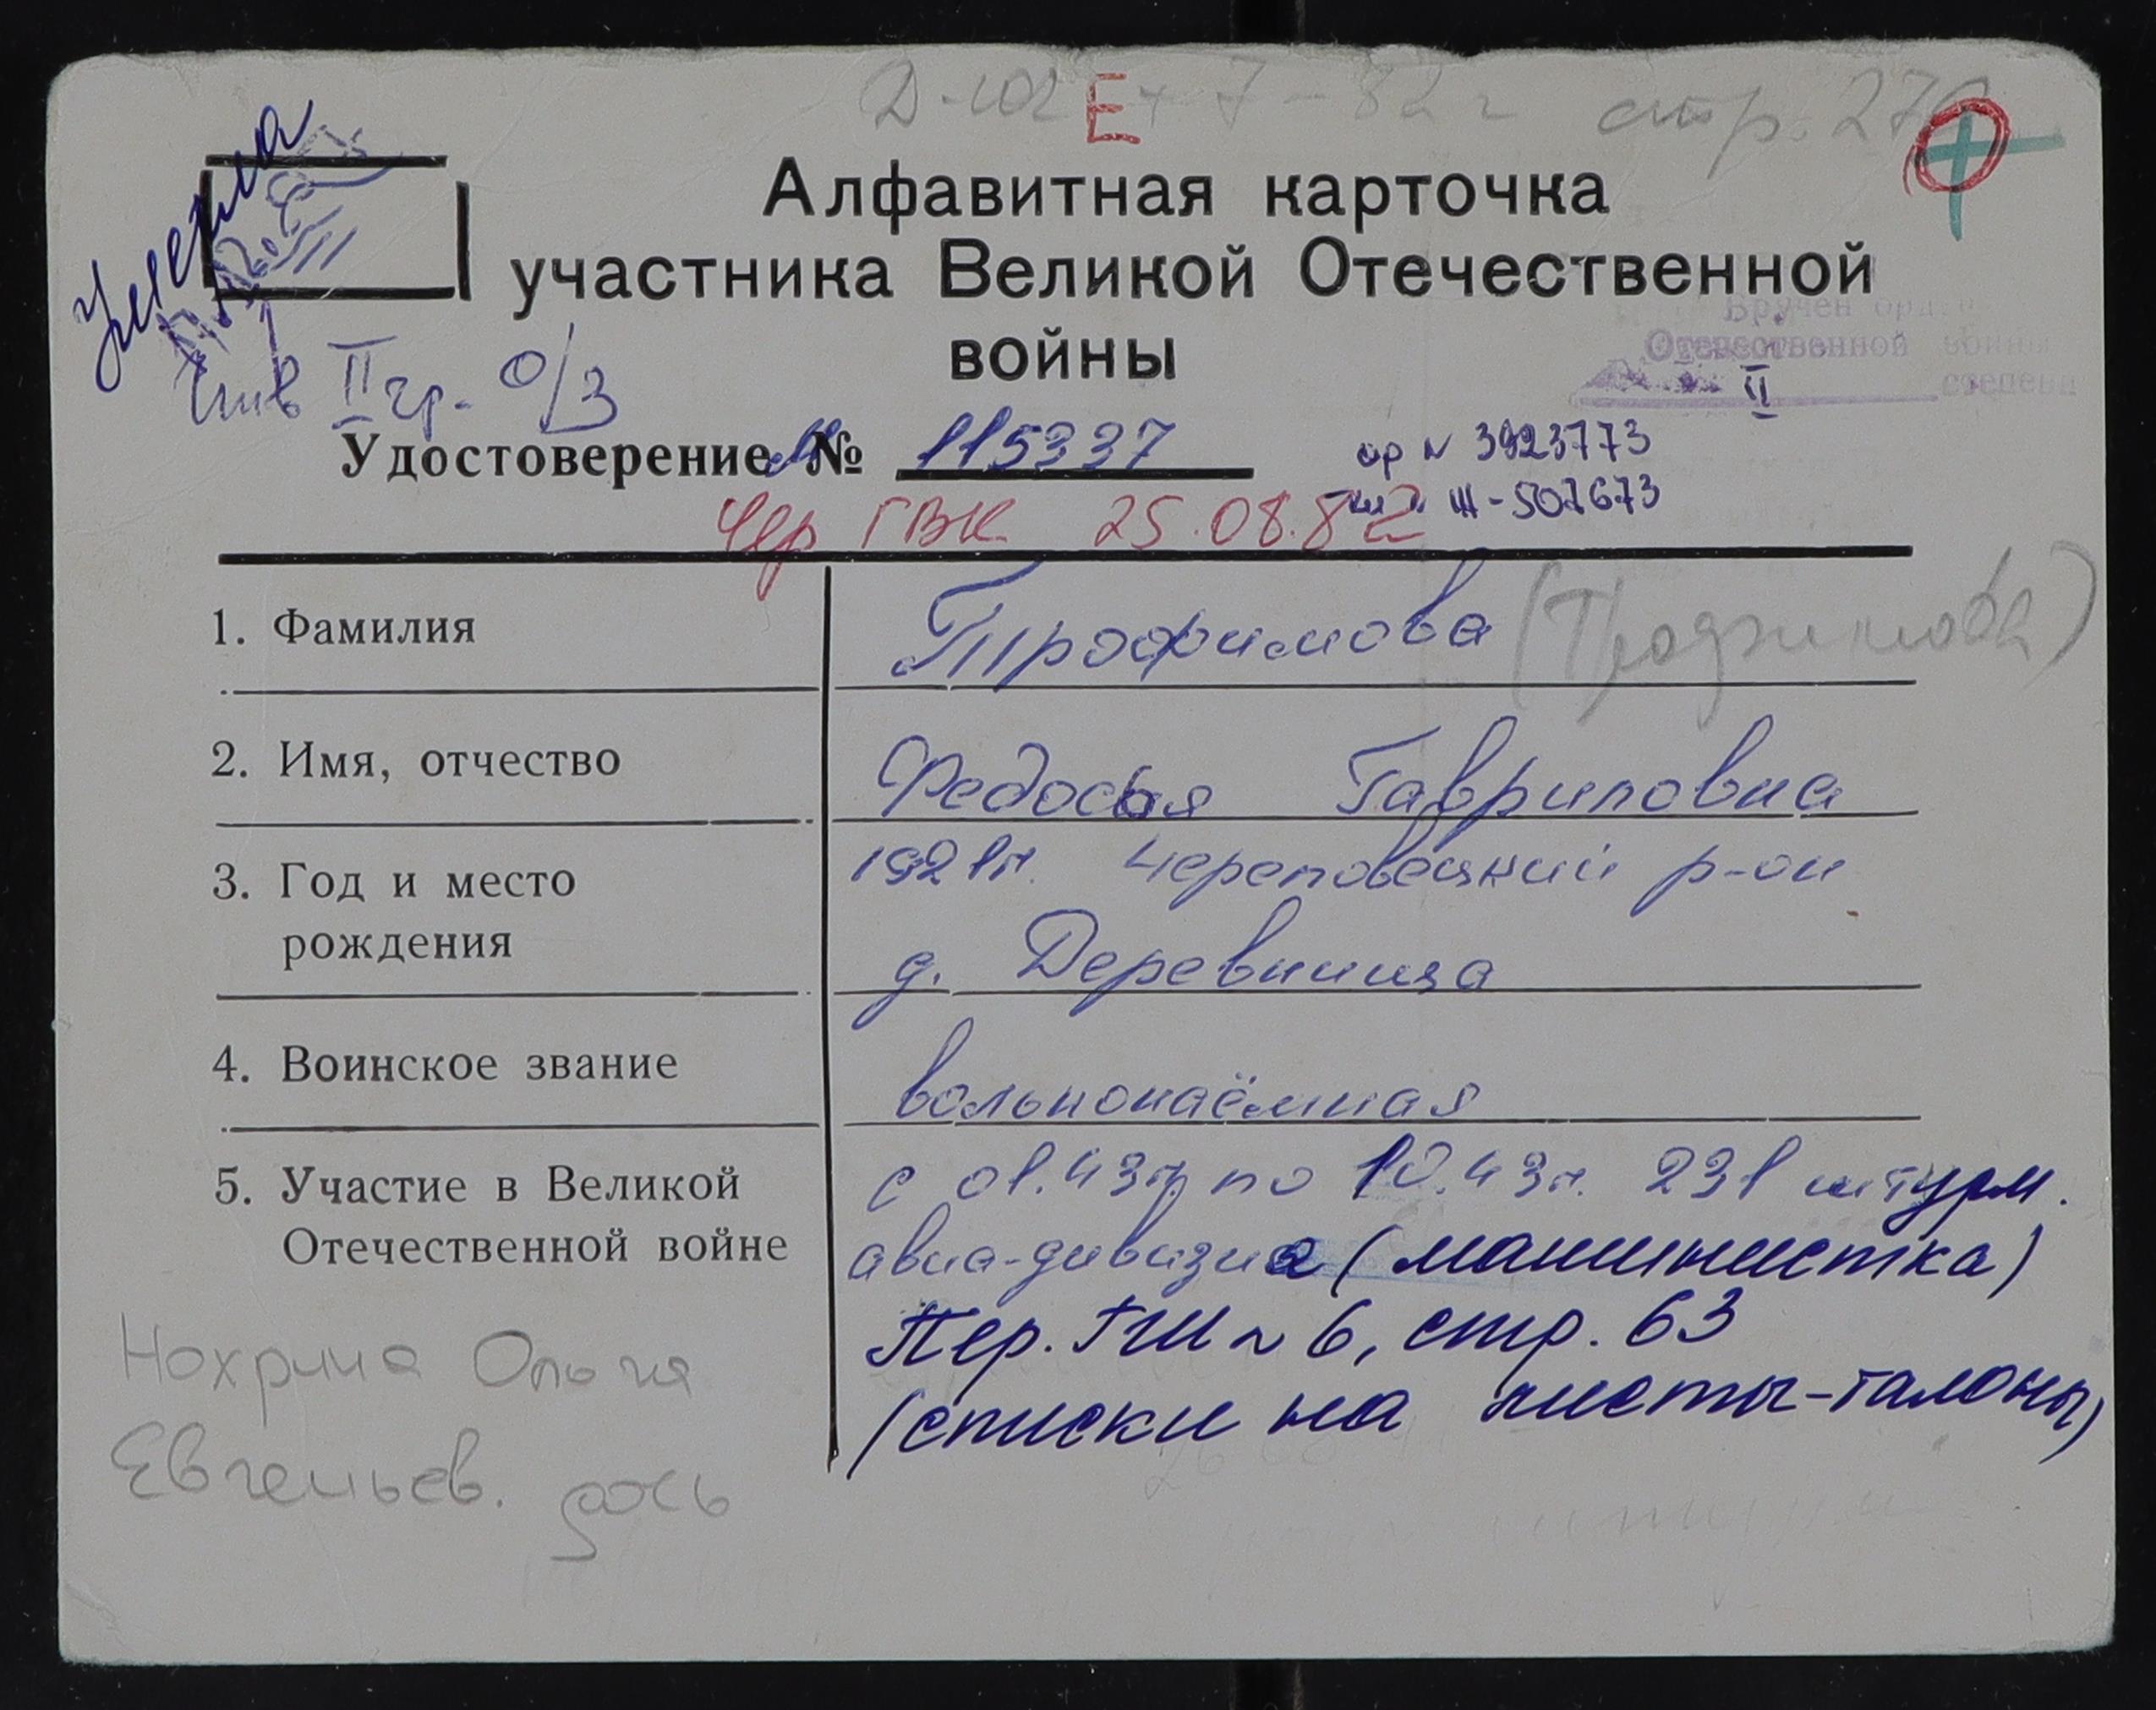 Е
стр.
Умерла
Алфавитная карточка
участника Великой Отечественной
войны
Вручен
Отечественной войны
II степени
Инв II гр. О/З
Удостоверение № 115337
ор № 3923773
Ш-507673
Чер ГВК 25.08.82
1. Фамилия Трофимова
2. Имя, отчество Федосья Гавриловна
3. Год и место 1921г. Череповецкий р-он
рождения д. Деревница
4. Воинское звание вольнонаёмная
5. Участие в Великой с 01.43г. по 10.43г. 231 штурм.
Отечественной войне авиа-дивизия (машинистка)
Пер. ГШ № 6, стр. 63
(списки на листы-талоны)
Нохрина Ольга
Евгеньев. дочь